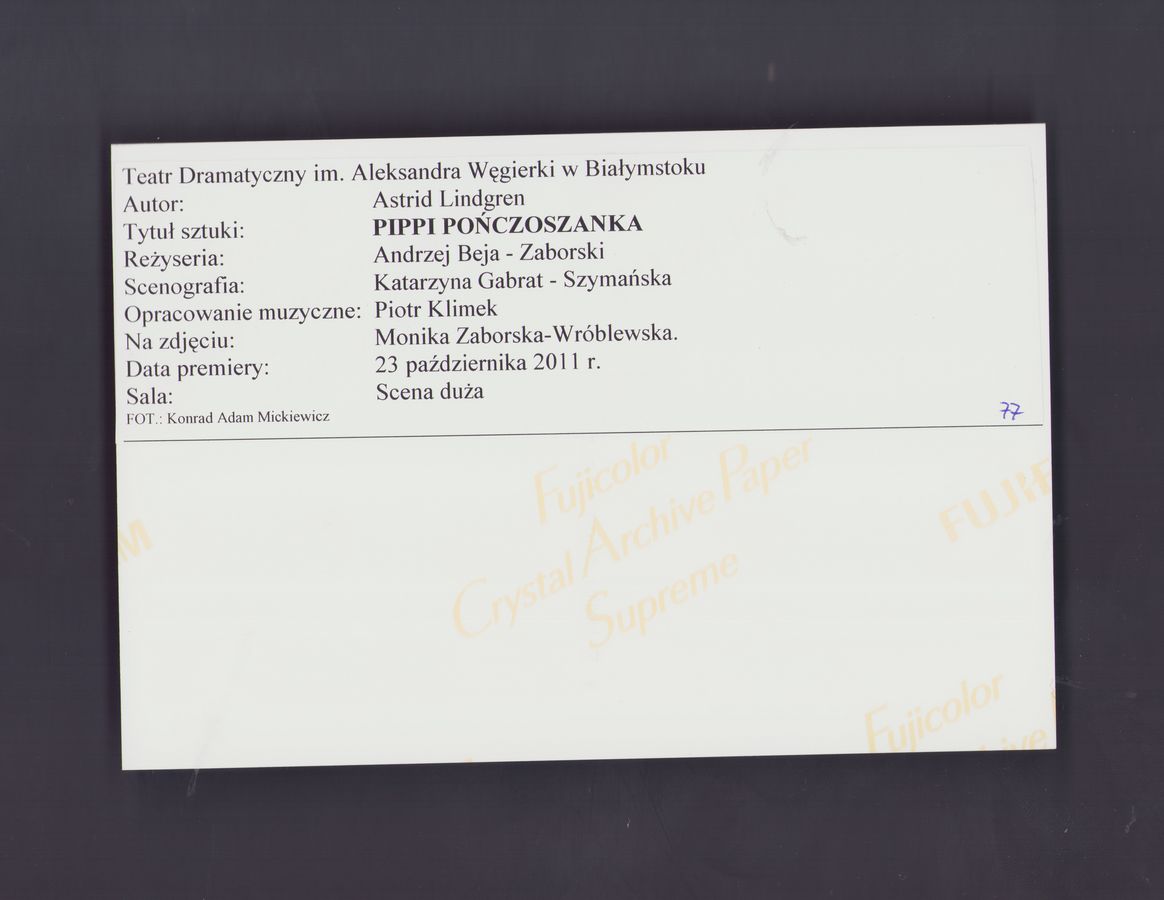 Teatr Dramatyczny im. Aleksandra Węgierki w Białymstoku
Autor: Astrid Lindgren
Tytuł sztuki: PIPPI POŃCZOSZANKA
Reżyseria: Andrzej Beja - Zaborski
Scenografia: Katarzyna Gabrat - Szymańska
Opracowanie muzyczne: Piotr Klimek
Na zdjęciu: Monika Zaborska-Wróblewska.
Data premiery: 23 października 2011 r.
Sala: Scena duża
FOT.: Konrad Adam Mickiewicz
77
Fujicolor
Crystal Archive Paper
Supreme
FUJIF
M
Fujicolor
hive